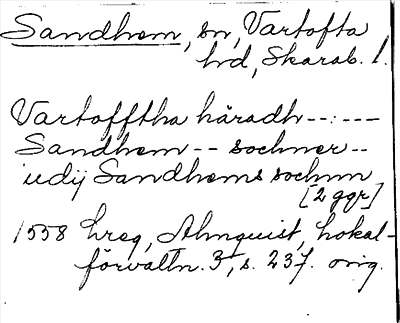 Sandhem, sn, Vartofta
hd, Skarab. l.
Vartofftha häradh--:---
Sandhem -- sochner--
udij Sandhems sochnn
[2 ggr]
1558 hreg, Almquist, Lokal-
förvaltn. 3, s. 237. orig.